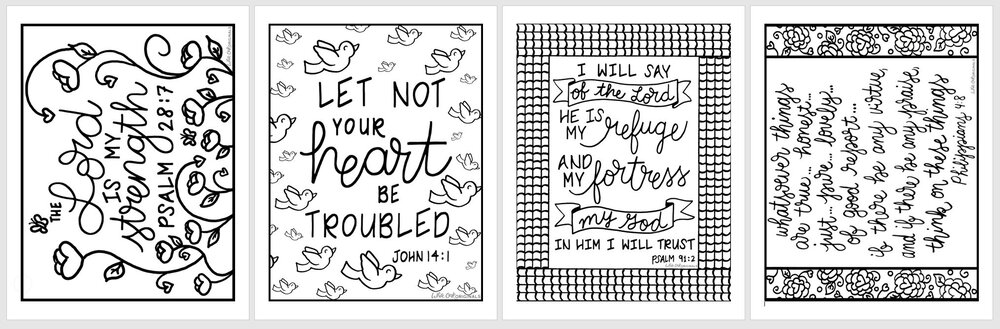 THE
Lord
IS MY
strength
PSALM 28:7
LET NOT
YOUR
heart
BE
TROUBLED
JOHN 14:1
I WILL SAY
of the Lord
HE IS
MY refuge
AND
MY fortress
my God
IN HIM I WILL TRUST
PSALM 91:2
whatsoever things
are true... honest...
just... pure... lovely...
of good report...
if there be any virtue,
and if there be any praise,
think on these things
Philippians 4:8